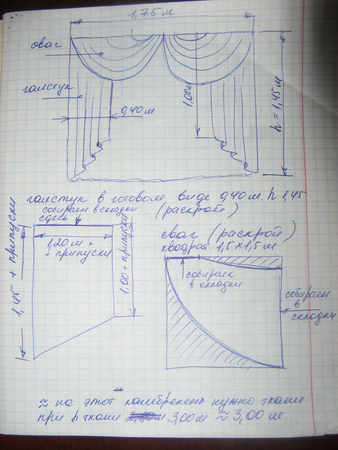 1,75 м
сваг
галстук
0,40 м
1,00 м
h = 1,45 м
галстук в готовом виде 0,40 м, h 1,45
собираем в складки (раскрой)
здесь
1,20 м +
+ припуски
1,45 + припуски
1,00 + припуски
сваг (раскрой)
квадрат 1,5 × 1,5 м
собираем
в складки
собираем
в
складки
≈ на этот ламбрекен нужно ткани
при h ткани 3,00 м ≈ 3,00 м.